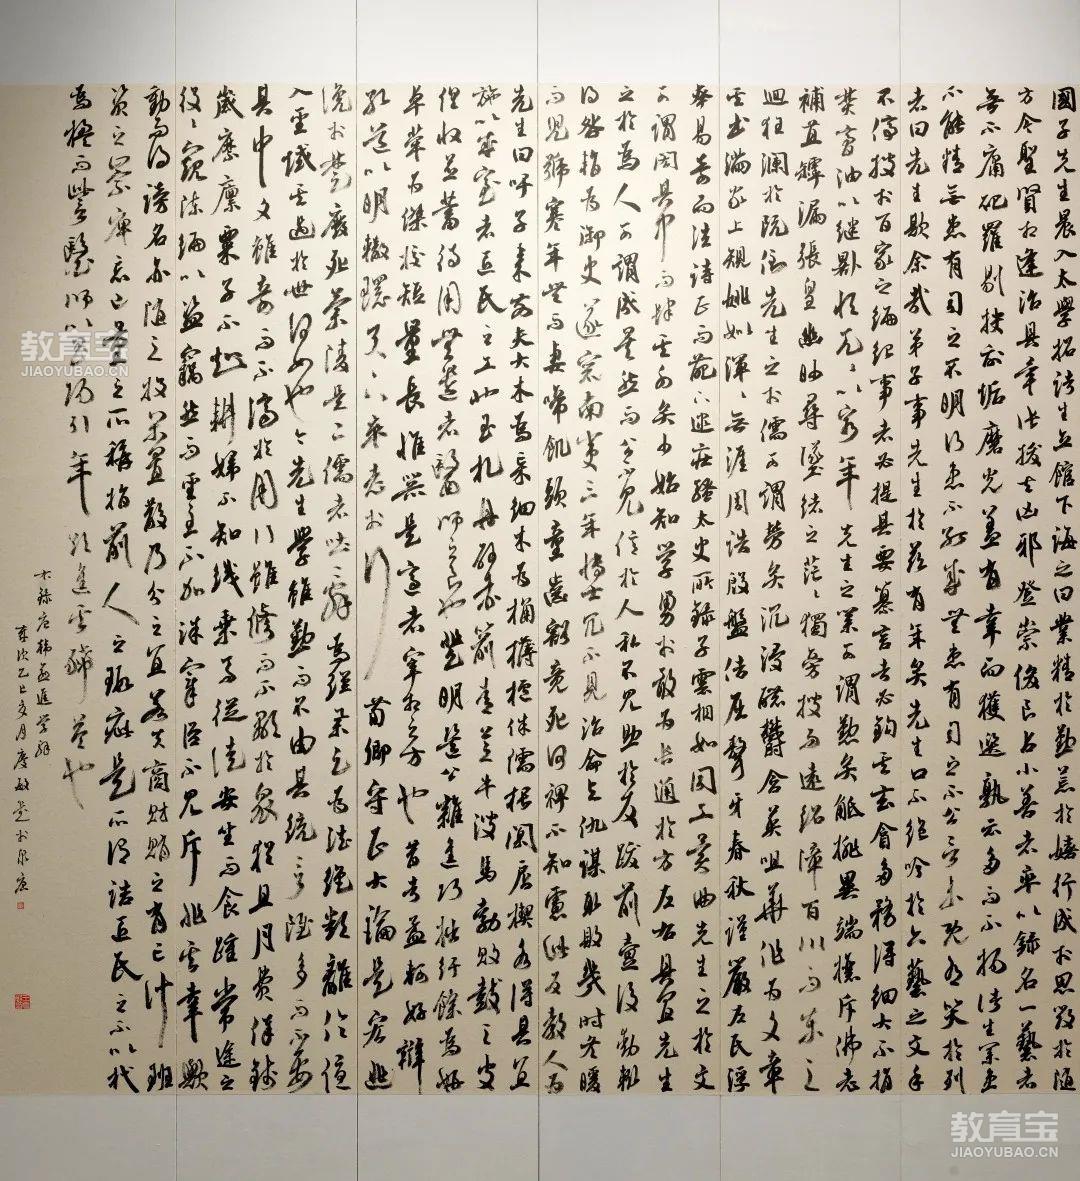 國子先生晨入太學招諸生立館下誨之曰業精於勤荒於嬉行成於思毀於隨
方今聖賢相逢治具畢張拔去凶邪登崇俊良占小善者率以錄名一藝者
無不庸爬羅剔抉刮垢磨光蓋有幸而獲選孰云多而不揚諸生業患
不能精無患有司之不明行患不能成無患有司之不公言未既有笑於列
者曰先生欺余哉弟子事先生於茲有年矣先生口不絕吟於六藝之文手
不停披於百家之編紀事者必提其要纂言者必鉤其玄貪多務得細大不捐
焚膏油以繼晷恒兀兀以窮年先生之業可謂勤矣觝排異端攘斥佛老
補苴罅漏張皇幽眇尋墜緒之茫茫獨旁搜而遠紹障百川而東之
迴狂瀾於既倒先生之於儒可謂勞矣沉浸醲鬱含英咀華作為文章
其書滿家上規姚姒渾渾無涯周誥殷盤佶屈聱牙春秋謹嚴左氏浮
夸易奇而法詩正而葩下逮莊騷太史所錄子雲相如同工異曲先生之於文
可謂閎其中而肆其外矣少始知學勇於敢為長通於方左右具宜先生
之於為人可謂成矣然而公不見信於人私不見助於友跋前疐後動輒
得咎暫為御史遂竄南夷三年博士冗不見治命與仇謀取敗幾時冬暖
而兒號寒年豐而妻啼飢頭童齒豁竟死何裨不知慮此反教人為
先生曰吁子來前夫大木為杗細木為桷欂櫨侏儒椳闑扂楔各得其宜
施以成室者匠氏之工也玉札丹砂赤箭青芝牛溲馬勃敗鼓之皮
俱收並蓄待用無遺者醫師之良也登明選公雜進巧拙紆餘為妍
卓犖為傑校短量長惟器是適者宰相之方也昔者孟軻好辯
孔道以明轍環天下卒老於行荀卿守正大論是宏逃
讒於楚廢死蘭陵是二儒者吐辭為經舉足為法絕類離倫優
入聖域其遇於世何如也今先生學雖勤而不由其統言雖多而不要
其中文雖奇而不濟於用行雖修而不顯於眾猶且月費俸錢
歲靡廩粟子不知耕婦不知織乘馬從徒安坐而食踵常途之
役役窺陳編以盜竊然而聖主不加誅宰臣不見斥非其幸歟
動而得謗名亦隨之投閒置散乃分之宜若夫商財賄之有亡計班
資之崇庳忘己量之所稱指前人之瑕疵是所謂詰匠氏之不以杙
為楹而訾醫師以昌陽引年欲進其豨苓也
右錄唐韓愈進學解
歲次乙巳月於京
教育宝
JIAOYUBAO.CN
教育宝
JIAOYUBAO.CN